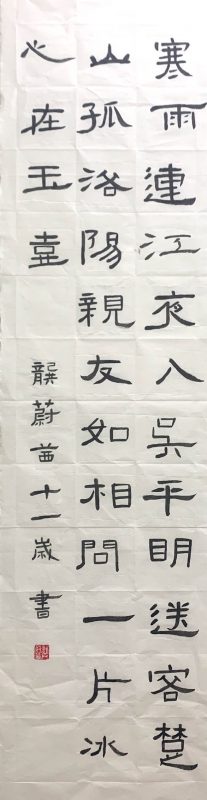 寒雨連江夜入吳平明送客楚
山孤洛陽親友如相問一片冰
心在玉壺
龔蔚苗十一歲書